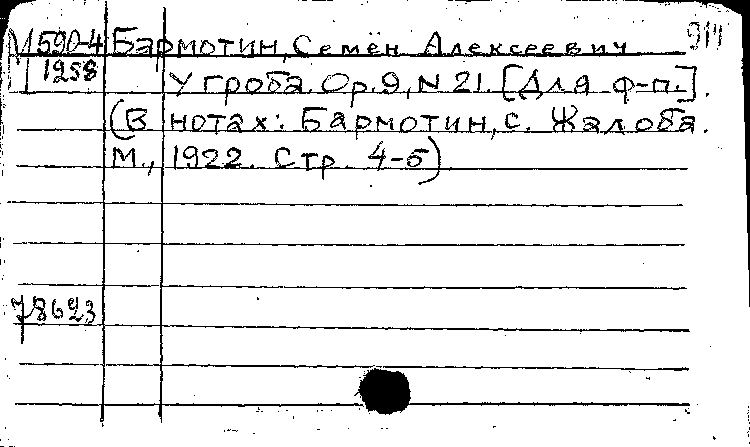 914
М 590-4 Бармотин, Семён Алексеевич
1258 У гроба. Op. 9, N 21. [Для ф-п.].
(В нотах: Бармотин, С. Жалоба.
М., 1922. Стр. 4-5)
78623